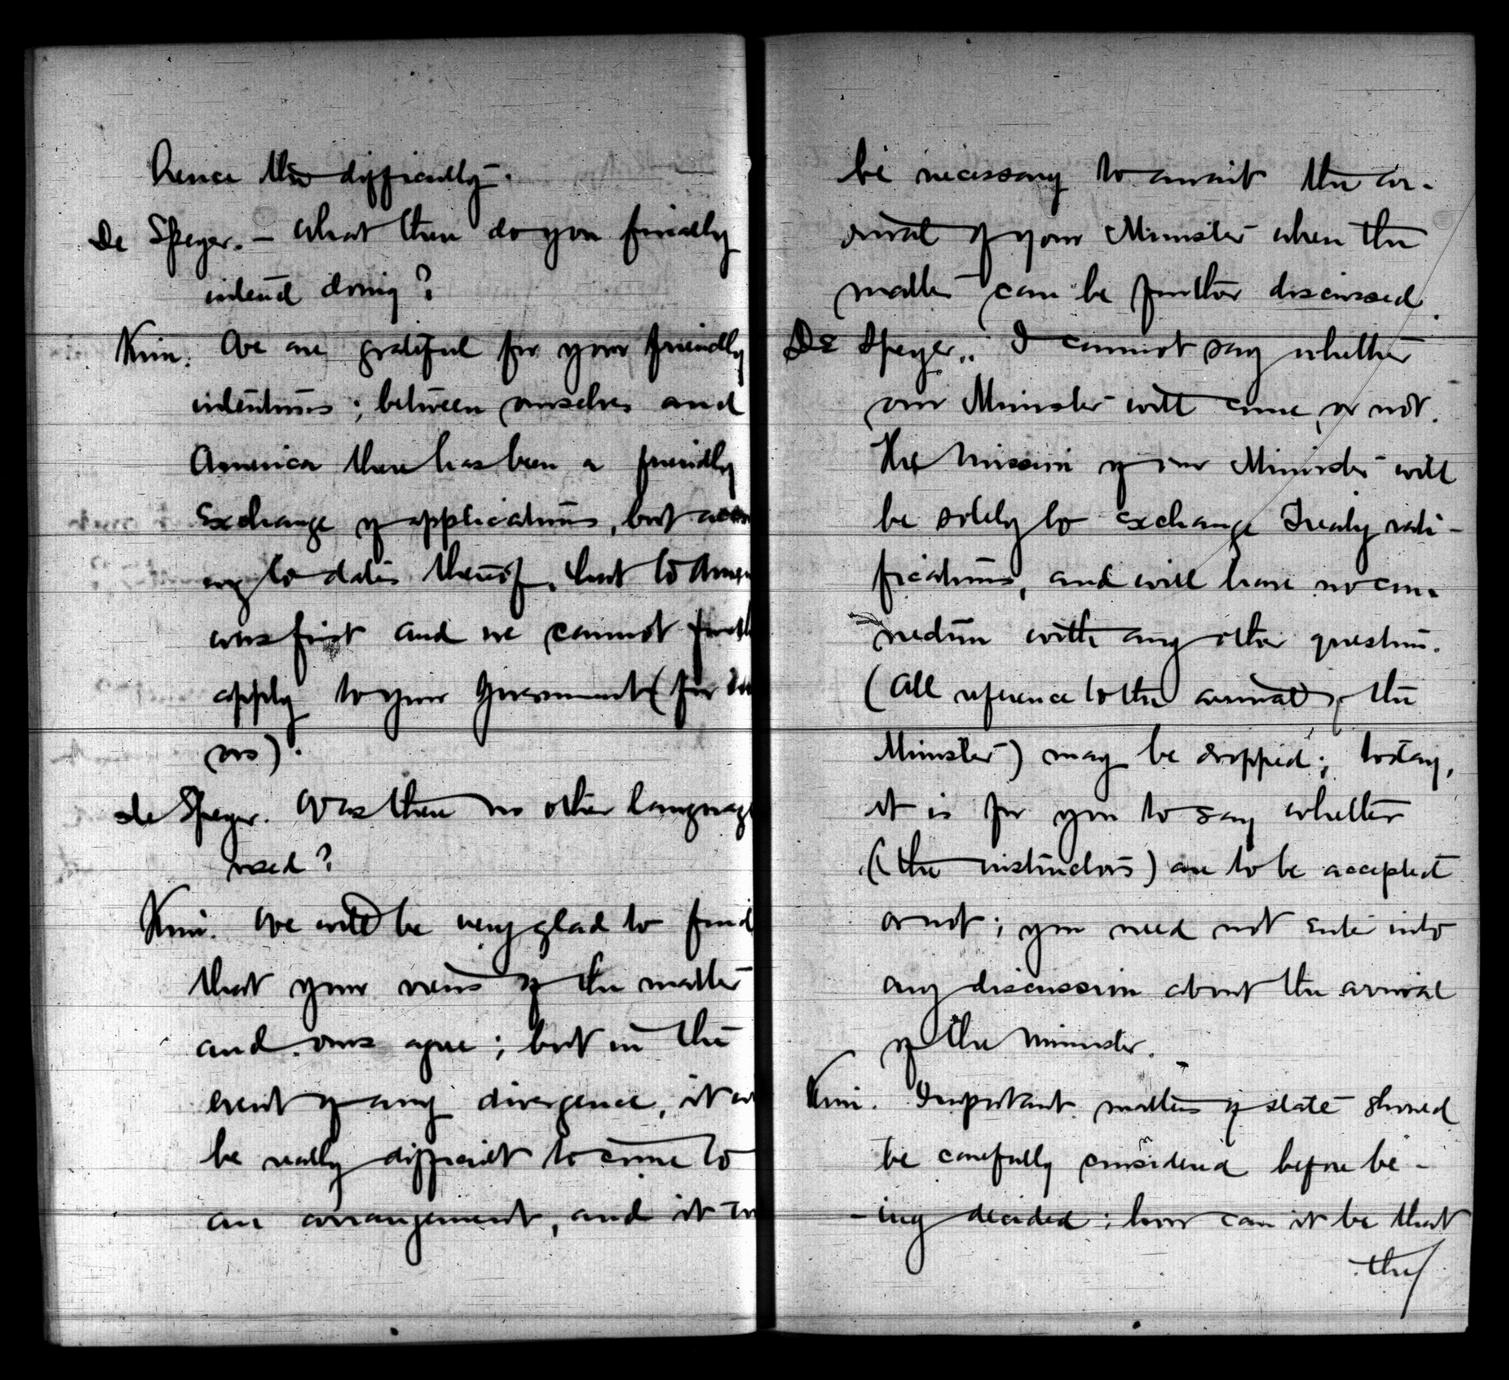 hence the difficulty.
De Speyer. — What then do you finally
intend doing?
Kim. We are grateful for your friendly
intentions; between ourselves and
America there has been a friendly
exchange of applications, but
ing to dates thereof, that to
was first and we cannot
apply to your Government (for
ors).
de Speyer. Was there no other language
used?
Kim. We will be very glad to find
that your views of the matter
and ours agree; but in the
event of any divergence, it
be really difficult to come to
an arrangement, and it
be necessary to await the ar-
rival of your Minister when the
matter can be further discussed.
De Speyer.. I cannot say whether
our Minister will come, or not.
The mission of our Minister will
be solely to exchange Treaty rati-
fications, and will have no con-
nection with any other question.
(All reference to the arrival of the
Minister) may be dropped; today,
it is for you to say whether
(the instructors) are to be accepted
or not; you need not enter into
any discussion about the arrival
of the Minister.
Kim. Important matters of state should
be carefully considered before be-
-ing decided: how can it be that
the/